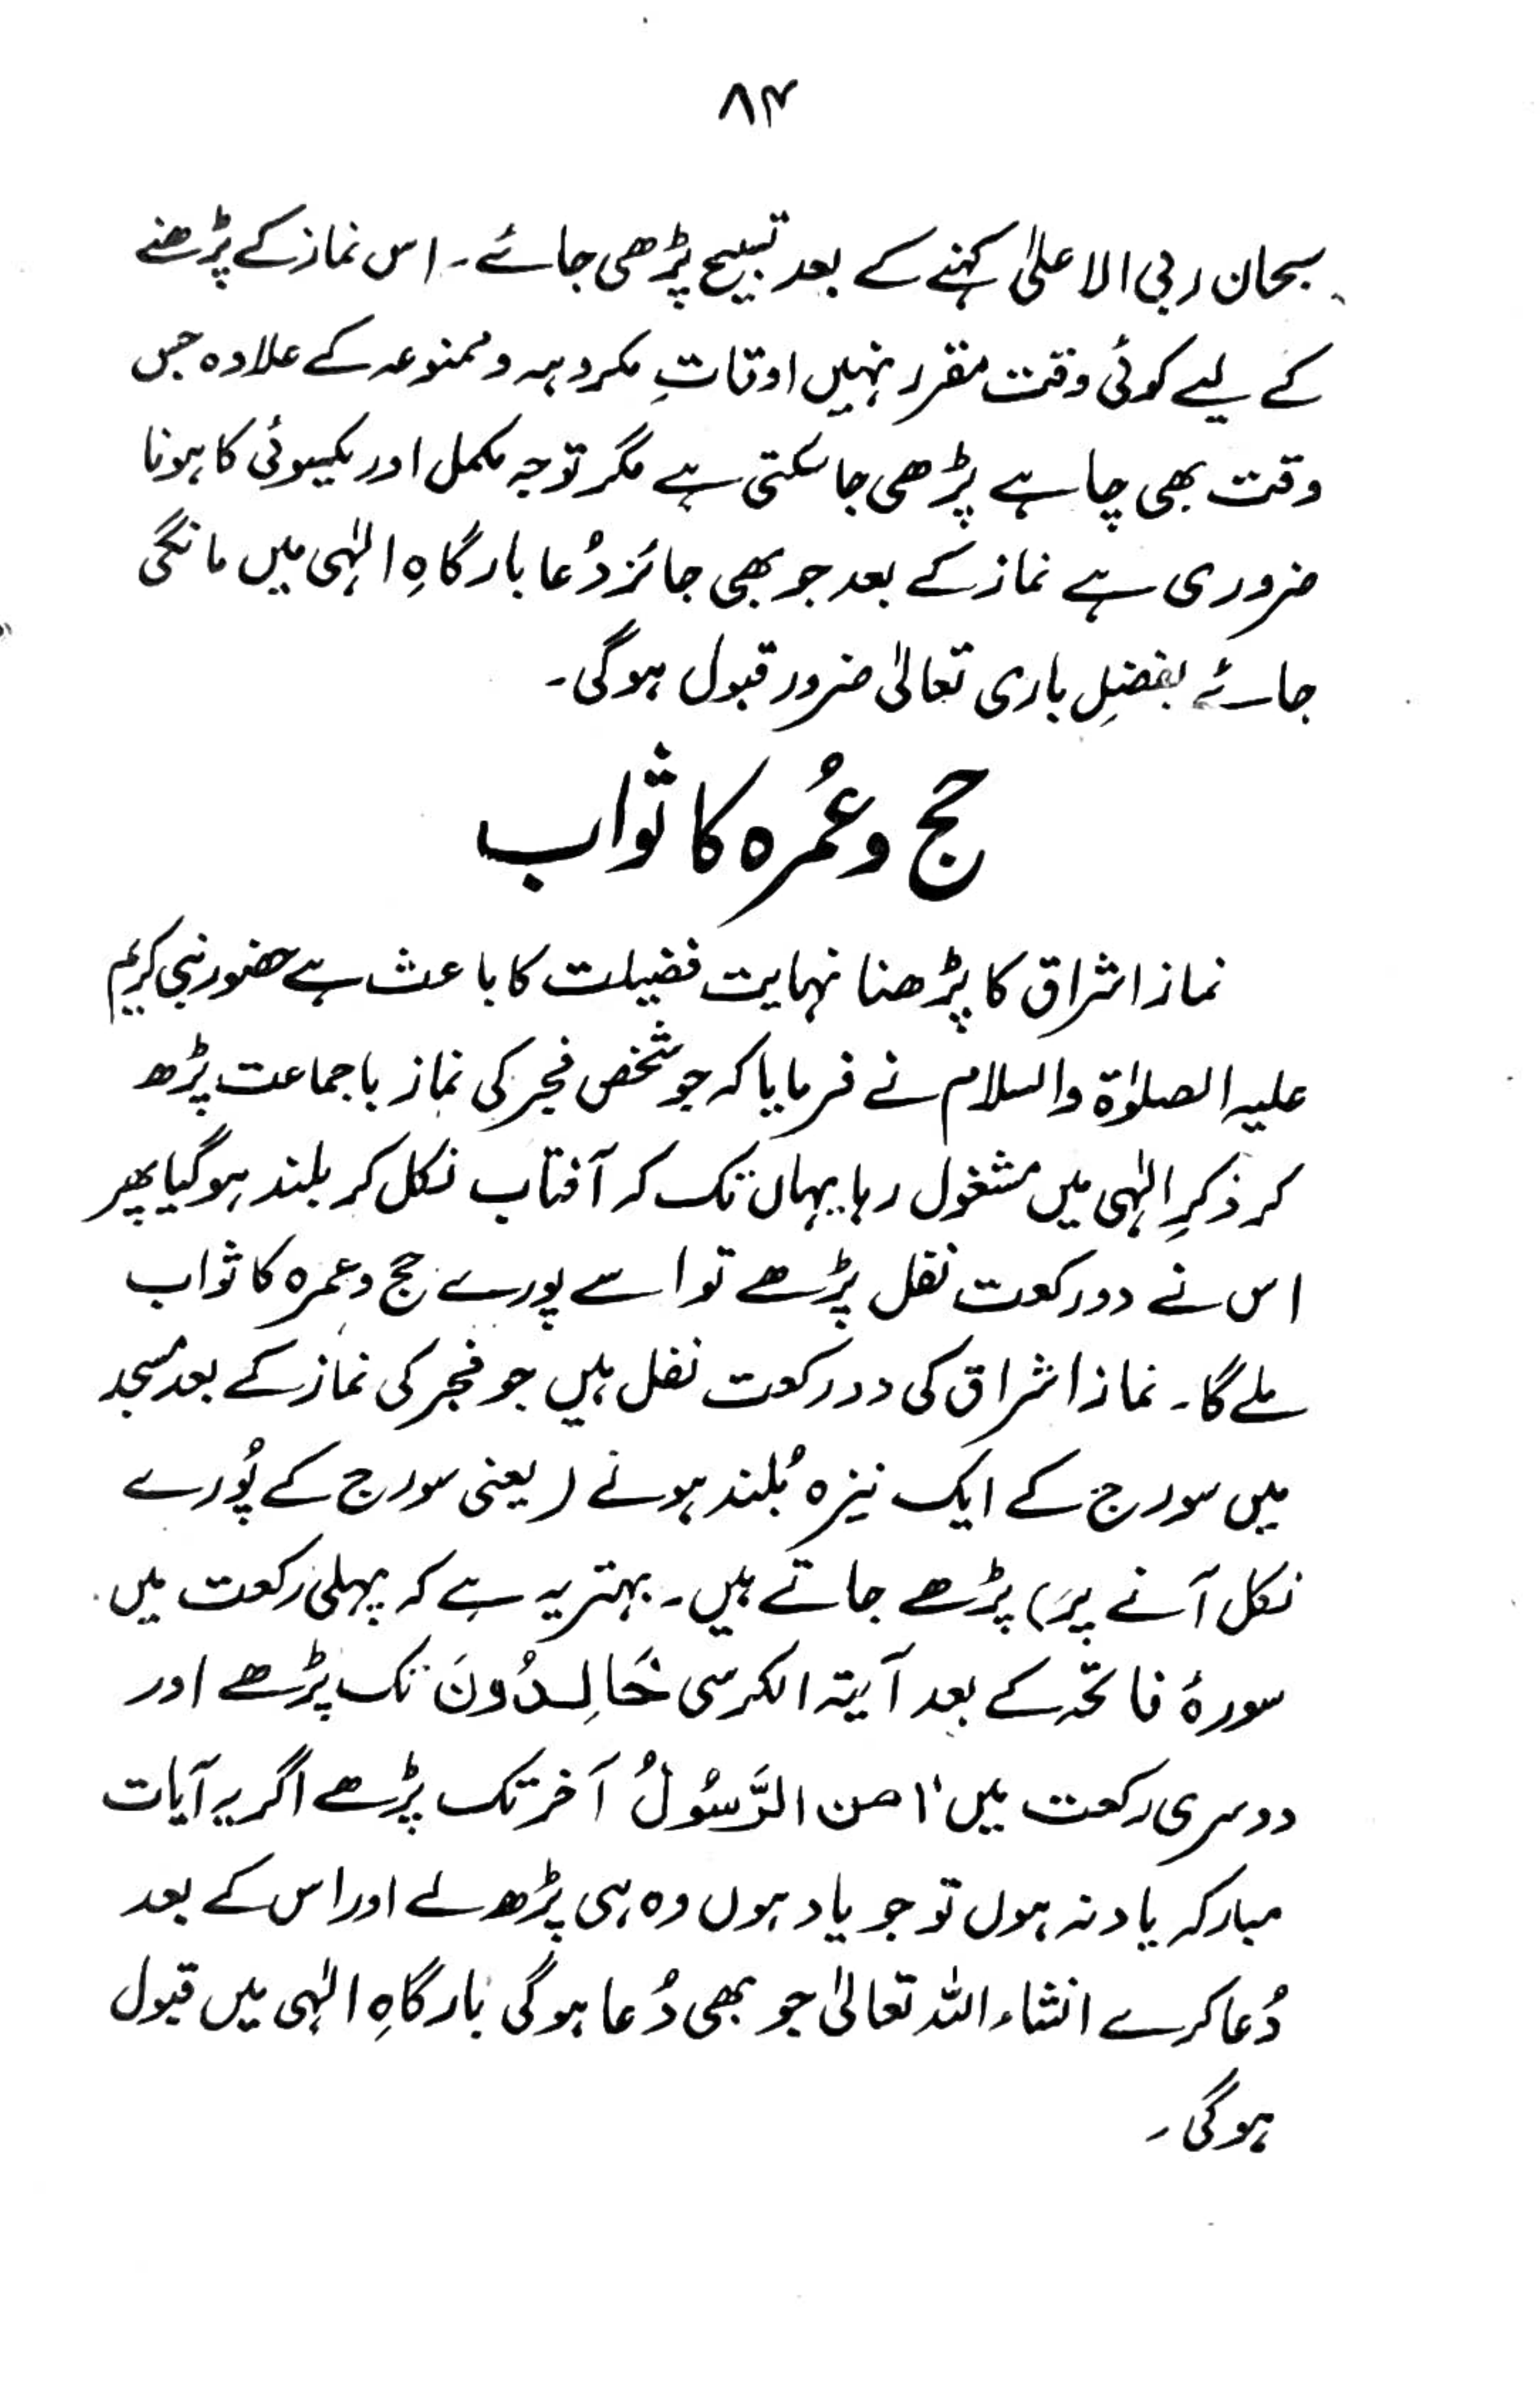 ۸۴
سبحان ربی الاعلیٰ کہنے کے بعد تسبیح پڑھی جائے۔ اس نماز کے پڑھنے
کے لیے کوئی وقت مقرر نہیں اوقاتِ مکروہہ و ممنوعہ کے علاوہ جس
وقت بھی چاہے پڑھی جا سکتی ہے مگر توجہ مکمل اور یکسوئی کا ہونا
ضروری ہے نماز کے بعد جو بھی جائز دُعا بارگاہِ الٰہی میں مانگی
جائے بفضلِ باری تعالیٰ ضرور قبول ہوگی۔
حج و عُمرہ کا ثواب
نماز اشراق کا پڑھنا نہایت فضیلت کا باعث ہے حضور نبی کریم
علیہ الصلوٰۃ والسلام نے فرمایا کہ جو شخص فجر کی نماز باجماعت پڑھ
کر ذکرِ الٰہی میں مشغول رہا یہاں تک کہ آفتاب نکل کر بلند ہوگیا پھر
اس نے دو رکعت نفل پڑھے تو اسے پورے حج و عمرہ کا ثواب
ملے گا۔ نماز اشراق کی دو رکعت نفل ہیں جو فجر کی نماز کے بعد مسجد
میں سورج کے ایک نیزہ بُلند ہونے (یعنی سورج کے پُورے
نکل آنے پر) پڑھے جاتے ہیں۔ بہتر یہ ہے کہ پہلی رکعت میں
سورۂ فاتحہ کے بعد آیتہ الکرسی خَالِدُونَ تک پڑھے اور
دوسری رکعت میں اٰمن الرَّسُوْلُ آخر تک پڑھے اگر یہ آیات
مبارکہ یاد نہ ہوں تو جو یاد ہوں وہ ہی پڑھ لے اور اس کے بعد
دُعا کرے انشاء اللہ تعالیٰ جو بھی دُعا ہوگی بارگاہِ الٰہی میں قبول
ہوگی۔